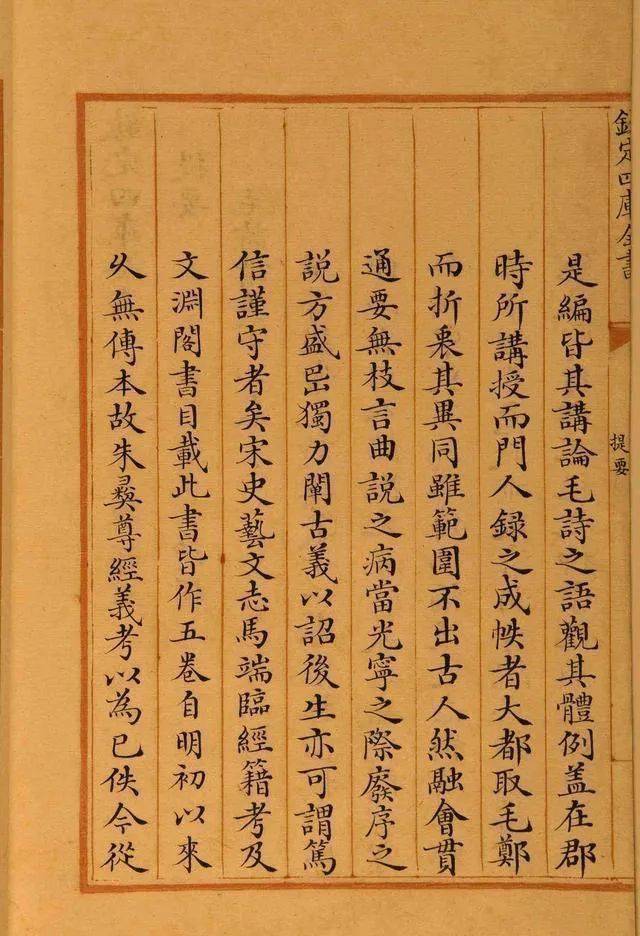 欽定四庫全書
提要
是編皆其講論毛詩之語觀其體例盖在郡
時所講授而門人録之成帙者大都取毛鄭
而折衷其異同雖範圍不出古人然融會貫
通要無枝言曲説之病當光寧之際廢序之
説方盛昌獨力闡古義以詔後生亦可謂篤
信謹守者矣宋史藝文志馬端臨經籍考及
文淵閣書目載此書皆作五巻自明初以來
乆無傳本故朱彛尊經義考以為已佚今從